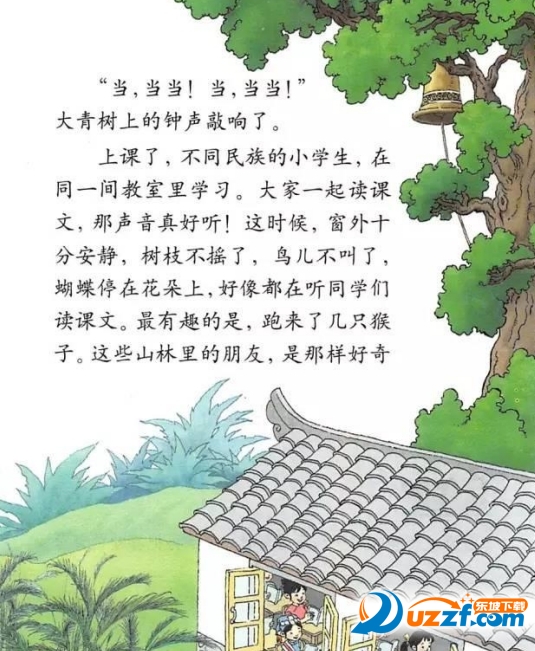 “当，当当！当，当当！”
大青树上的钟声敲响了。
上课了，不同民族的小学生，在
同一间教室里学习。大家一起读课
文，那声音真好听！这时候，窗外十
分安静，树枝不摇了，鸟儿不叫了，
蝴蝶停在花朵上，好像都在听同学们
读课文。最有趣的是，跑来了几只猴
子。这些山林里的朋友，是那样好奇
东坡下载
uzzf.com